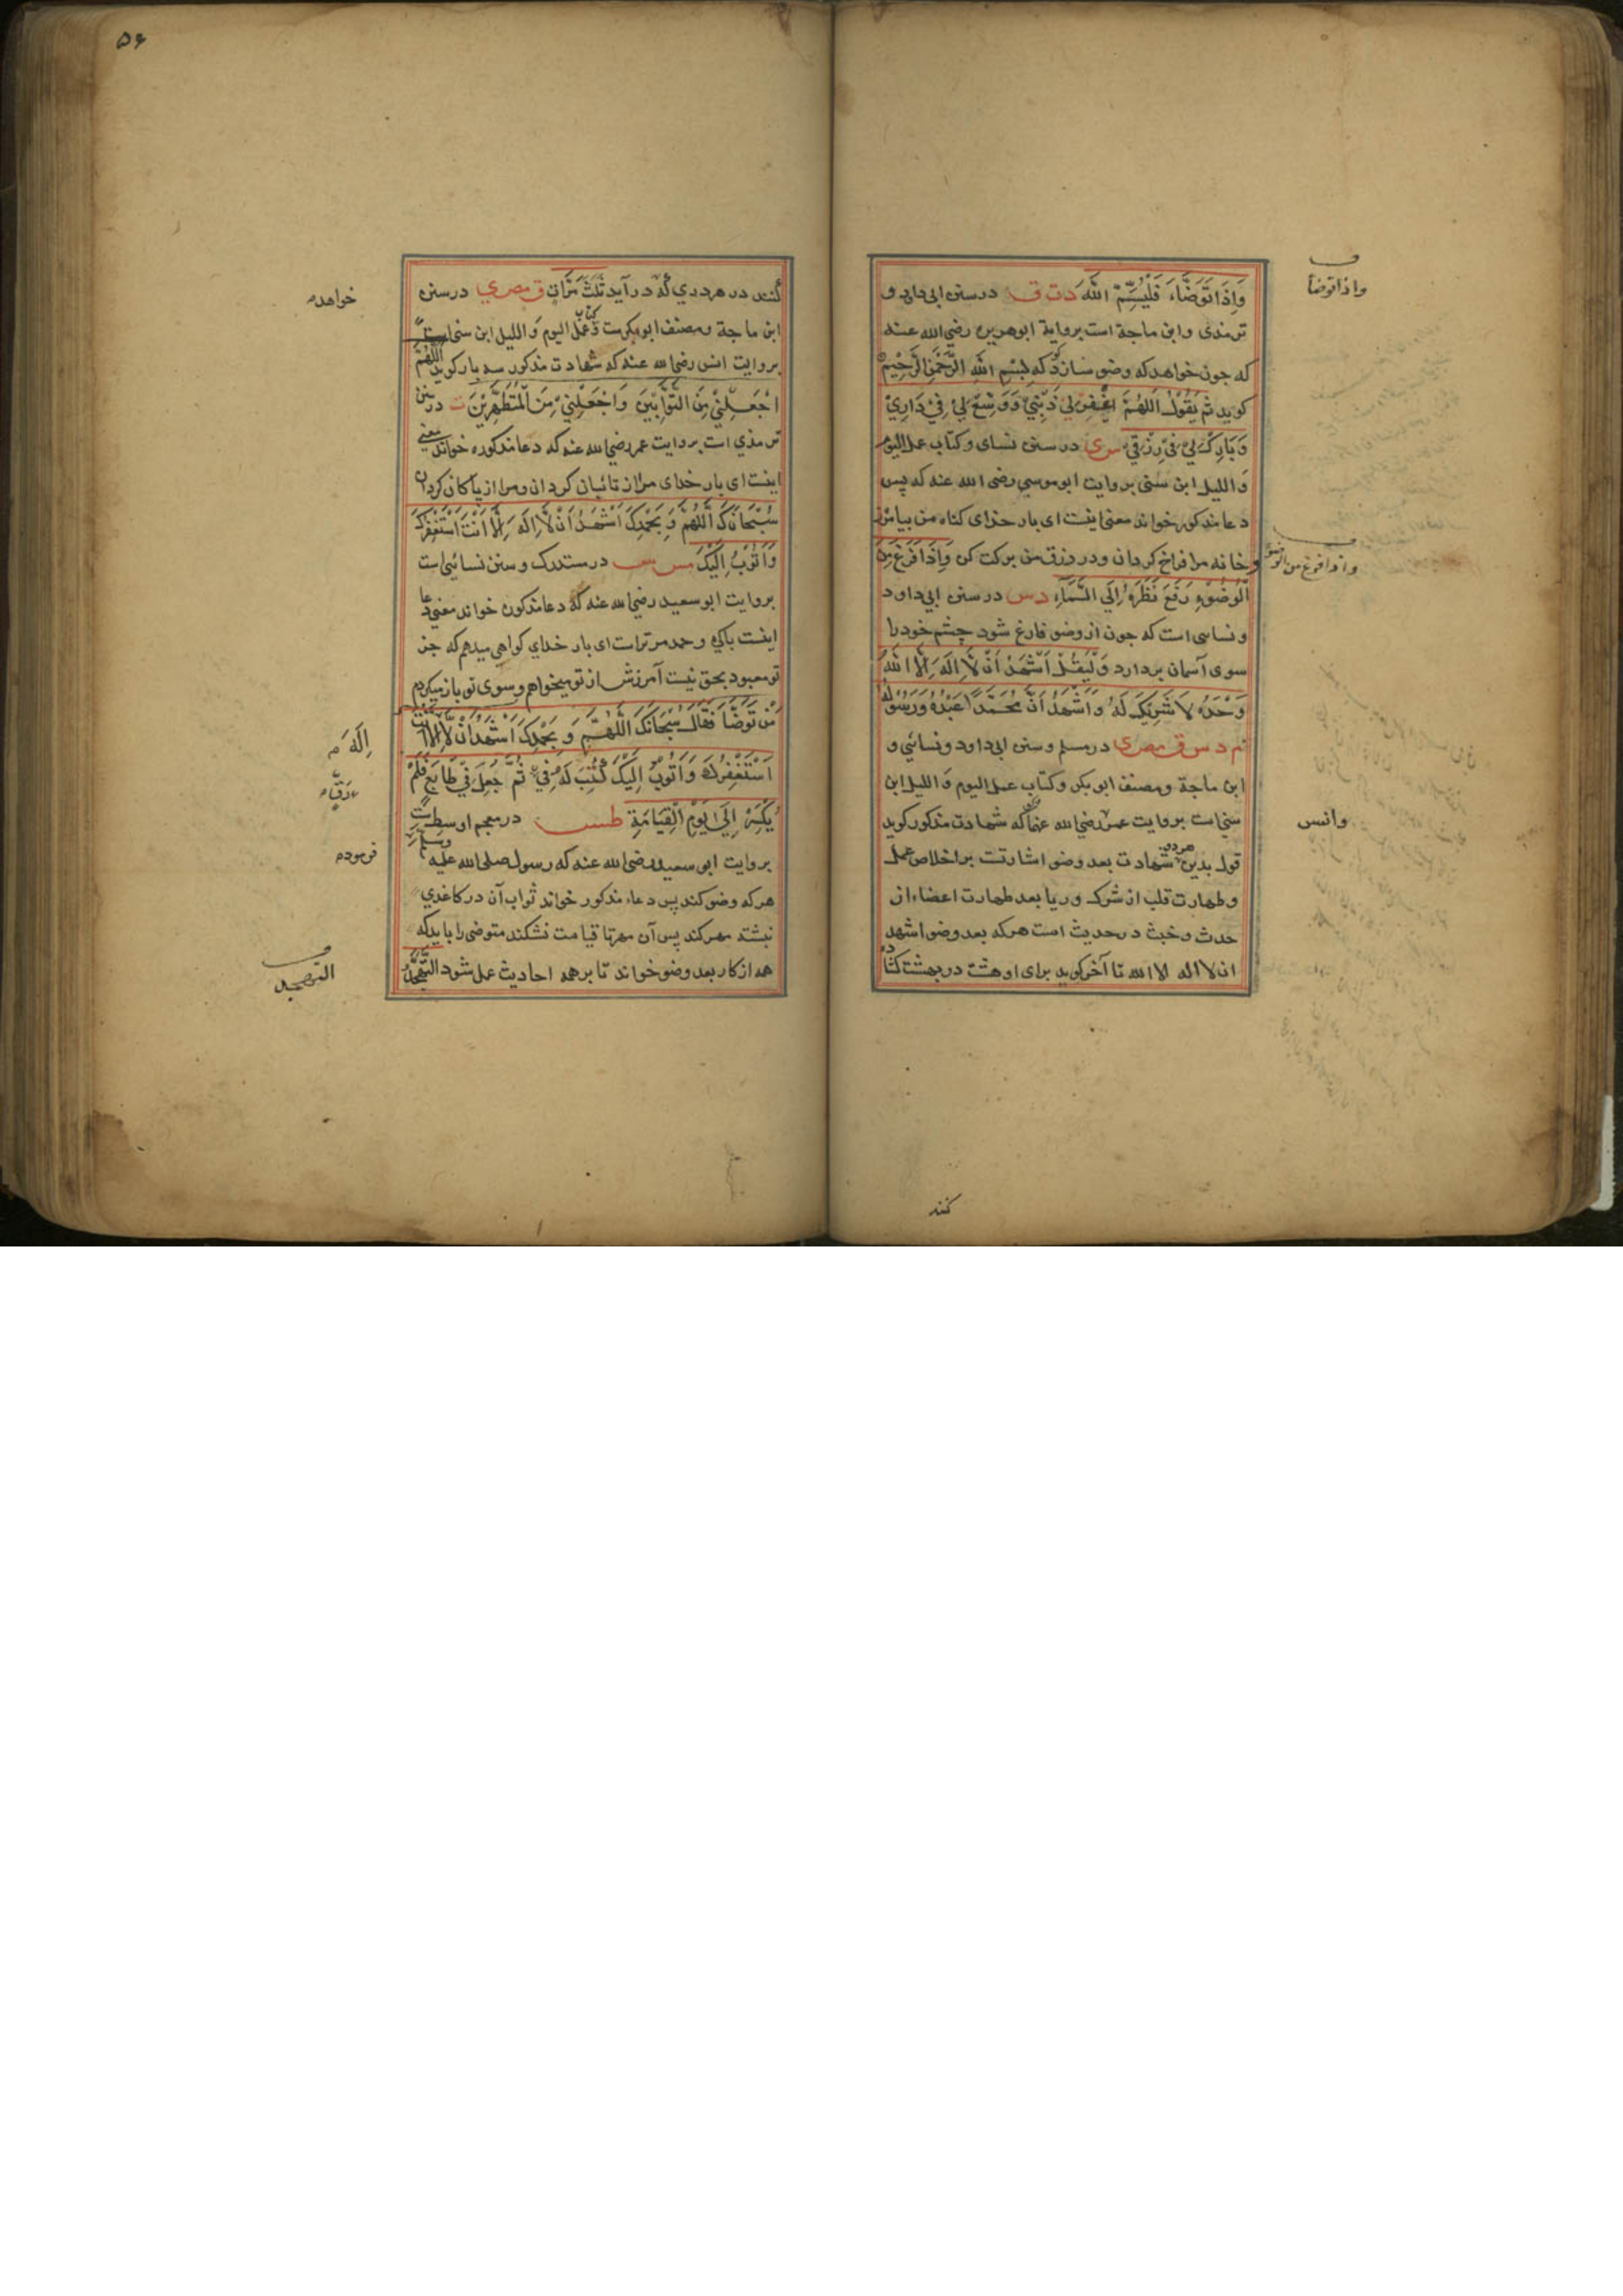 وَإِذَا تَوَضَّاءَ فَلْيُسَمِّ اللهَ دت ق در سنن ابی داود و
ترمذی وابن ماجة است بروایة ابوهریره رضی الله عنه
که چون خواهد که وضو سازد که بِسْمِ اللهِ الرَّحْمٰنِ الرَّحِيْمِ
کوید ثُمَّ يَقُوْلُ اَللّٰهُمَّ اغْفِرْ لِيْ ذَنْبِيْ وَوَسِّعْ لِيْ فِيْ دَارِيْ
وَبَارِكْ لِيْ فِيْ رِزْقِيْ س ی در سنن نسای وکتاب عمل الیوم
وَاللیل ابن سنی بروایت ابوموسی رضی الله عنه که پس
دعا مذکور خواند معنی اینست ای بار خدای کناه من بیامرز
وخانه مرا فراخ کردان ودر رزق من برکت کن وَإِذَا فَرَغَ مِنَ
الْوُضُوْءِ رَفَعَ نَظَرَهُ إِلَى السَّمَاءِ د س در سنن ابی داود
ونسای است که چون از وضو فارغ شود چشم خود را
سوی آسمان بردارد وَلْيَقُلْ اَشْهَدُ اَنْ لَّا اِلٰهَ اِلَّا اللهُ
وَحْدَهُ لَا شَرِيْكَ لَهُ وَاَشْهَدُ اَنَّ مُحَمَّدًا عَبْدُهُ وَرَسُوْلُهُ
م د س ق مص ی در مسلم وسنن ابی داود ونسائی و
ابن ماجة ومصنف ابوبکر وکتاب عمل الیوم وَاللیل ابن
سنی است بروایت عمر رضی الله عنهما که شهادت مذکور کوید
قول بدین هردو شهادت بعد وضو اشارتست بر اخلاص عمل
وطهارت قلب از شرک وریا بعد طهارت اعضاء از
حدث وخبث در حدیث است هرکه بعد وضو اشهد
ان لا اله الا الله تا آخر کوید برای او هشت در بهشت کشاده
کنند
واذا توضأ
واذا فرغ من الوضوء
وانس
۵۶
کنند در هر دری که در آید ثَلٰثَ مَرَّاتٍ ق مص ی در سنن
ابن ماجة ومصنف ابوبکرست وکتاب عمل الیوم وَاللیل ابن سنی است
بروایت انس رضی الله عنه که شهادت مذکور سه بار کوید اَللّٰهُمَّ
اجْعَلْنِيْ مِنَ التَّوَّابِيْنَ وَاجْعَلْنِيْ مِنَ الْمُتَطَهِّرِيْنَ ت در سنن
ترمذی است بروایت عمر رضی الله عنه که دعا مذکوره خواند معنی
اینست ای بار خدای مرا از تائبان کردان ومرا از پاکان کردان
سُبْحَانَكَ اللّٰهُمَّ وَبِحَمْدِكَ اَشْهَدُ اَنْ لَّا اِلٰهَ اِلَّا اَنْتَ اَسْتَغْفِرُكَ
وَاَتُوْبُ اِلَيْكَ مس س در مستدرک وسنن نسائی است
بروایت ابوسعید رضی الله عنه که دعا مذکور خواند معنی دعا
اینست پاکی وحمد مر تراست ای بار خدای کواهی میدهم که جز
تو معبود بحق نیست آمرزش از تو میخواهم وسوی تو باز میکردم
مَنْ تَوَضَّأَ فَقَالَ سُبْحَانَكَ اللّٰهُمَّ وَبِحَمْدِكَ اَشْهَدُ اَنْ لَّا اِلَّا اَنْتَ
اَسْتَغْفِرُكَ وَاَتُوْبُ اِلَيْكَ كُتِبَ لَهُ فِيْ ثُمَّ جُعِلَ فِيْ طَابَعٍ فَلَمْ
يُكْسَرْ اِلَى يَوْمِ الْقِيَامَةِ طس در معجم اوسطست
بروایت ابوسعید رضی الله عنه که رسول صلی الله علیه وسلم
هرکه وضو کند پس دعاء مذکور خواند ثواب آن در کاغذی
نبشته مهر کند پس آن مهر تا قیامت نشکند متوضی را باید که
همه اذکار بعد وضو خواند تا بر همه احادیث عمل شود التَّهَجُّدُ
خواهدم
اِلٰهَ م
رَقٍّ م
فرموده
التهجد